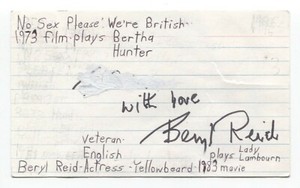 No Sex Please. We're British-
1973 film-plays Bertha
Hunter
with love
Beryl Reid
veteran-
English
plays Lady
Lambourn
Beryl Reid-Actress-Yellowbeard-1983 movie